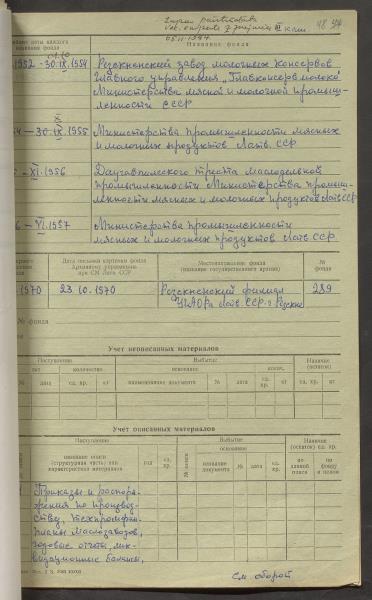 18 94
05.11.1994
йние даты каждого
названия фонда
Название фонда
1952 - 30.IX.1954
Резекненский завод молочных консервов
Главного управления „Главконсервмолоко"
Министерства мясной и молочной промыш-
ленности СССР
4 — 30.IX.1955
Министерства промышленности мясных
и молочных продуктов Латв. ССР
- XI.1956
Даугавпилского треста маслодельной
промышленности Министерства промыш-
ленности мясных и молочных продуктов Латв ССР
6 - VI.1957
Министерства промышленности
мясных и молочных продуктов Латв ССР
Дата посылки карточки фонда
Архивному управлению
при СМ Латв. ССР
Местонахождение фонда
(название государственного архива)
№
фонда
1970
23.10.1970
Резекненский филиал
ЦГАОРа Латв. ССР г Резекне
289
№ фонда
Учет неописанных материалов
Поступление
Выбытие
Наличие
(остаток)
количество
основание
колич.
№
дата
ед. хр.
кг
наименование документа
№
дата
ед. хр.
кг
ед. хр.
кг
Учет описанных материалов
Поступление
Выбытие
Наличие
(остаток) ед. хр.
название описи
(структурная часть) или
характеристика материалов
год
ед. хр.
№ описи
основание
название документа
№
дата
ед. хр.
по данной описи
по фонду в целом
Приказы и распоря-
жения по производ-
ству, техпромфин-
планы маслозаводов,
годовые отчеты, лик-
видационные балансы,
См. оборот